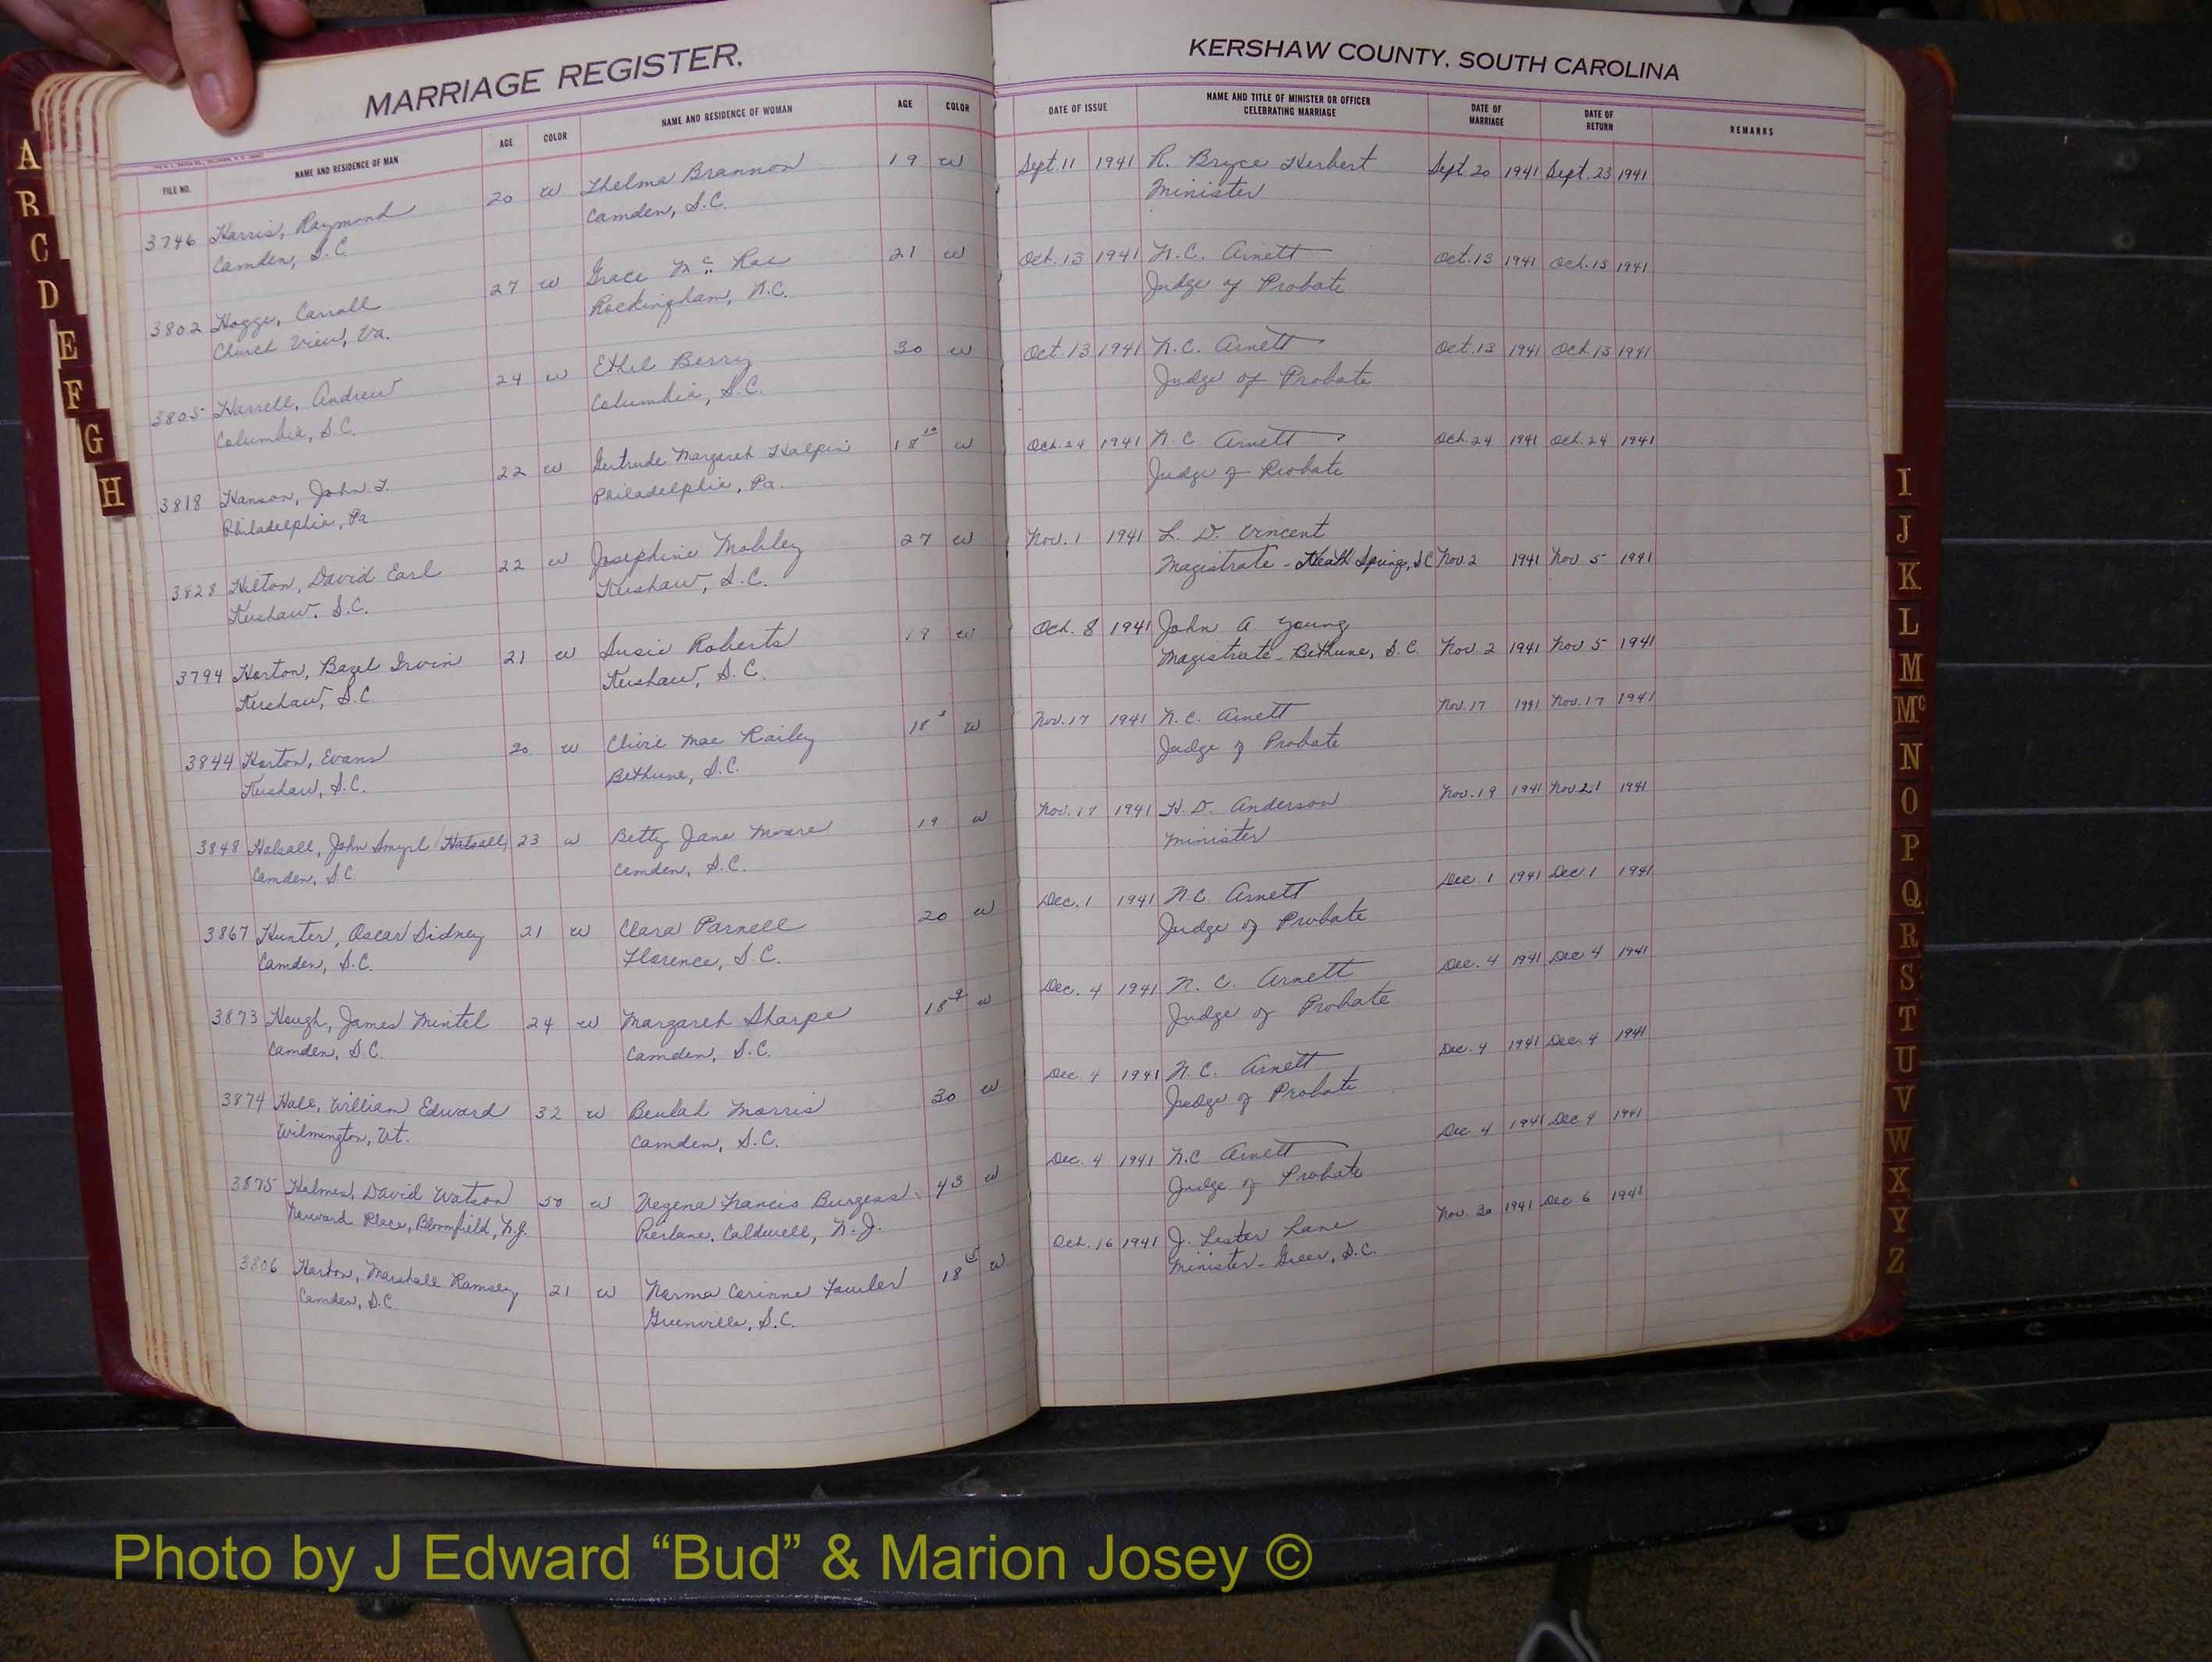 MARRIAGE REGISTER.
FILE NO. NAME AND RESIDENCE OF MAN AGE COLOR NAME AND RESIDENCE OF WOMAN AGE COLOR
3746 Harris, Raymond 20 w Thelma Brannon 19 w
Camden, S.C. Camden, S.C.
3802 Hogge, Carroll 27 w Grace Mc Rae 21 w
Church View, Va. Rockingham, N.C.
3805 Harrell, Andrew 24 w Ethel Berry 30 w
Columbia, S.C. Columbia, S.C.
3818 Hanson, John 22 w Gertrude Margaret Halpin 18 10 w
Philadelphia, Pa Philadelphia, Pa.
3828 Hilton, David Earl 22 w Josephine Mobley 27 w
Kershaw, S.C. Kershaw, S.C.
3794 Horton, Bazel Irvin 21 w Susie Roberts 19 w
Kershaw, S.C Kershaw, S.C.
3844 Horton, Evans 20 w Mae Railey 18 w
Kershaw, S.C. Bethune, S.C.
3848 Halsall, John Smyrl (Halsall) 23 w Betty Jane Moore 19 w
Camden, S.C. Camden, S.C.
3867 Hunter, Oscar Sidney 21 w Clara Parnell 20 w
Camden, S.C. Florence, S.C.
3873 Hough, James Mintel 24 w Margaret Sharpe 18 9 w
Camden, S.C. Camden, S.C.
3874 Hall, William Edward 32 w Beulah Morris 30 w
Wilmington, Vt. Camden, S.C.
3875 Holmes, David Watson 50 w Francis Burgess 43 w
Place, Bloomfield, N.J. Caldwell, N.J.
3806 Horton, Marshall Ramsey 21 w Norma Corinne Fowler 18 w
Camden, S.C Greenville, S.C.
KERSHAW COUNTY, SOUTH CAROLINA
DATE OF ISSUE NAME AND TITLE OF MINISTER OR OFFICER CELEBRATING MARRIAGE DATE OF MARRIAGE DATE OF RETURN REMARKS
Sept. 11 1941 R. Bryce Herbert Sept 20 1941 Sept. 23 1941
Minister
Oct. 13 1941 N.C. Arnett Oct. 13 1941 Oct. 13 1941
Judge of Probate
Oct. 13 1941 N.C. Arnett Oct. 13 1941 Oct. 13 1941
Judge of Probate
Oct. 24 1941 N.C Arnett Oct. 24 1941 Oct. 24 1941
Judge of Probate
Nov. 1 1941 L. D. Vincent
Magistrate - Heath Springs, SC Nov. 2 1941 Nov 5 1941
Oct. 8 1941 John A Young
Magistrate - Bethune, S.C. Nov 2 1941 Nov 5 1941
Nov. 17 1941 N.C. Arnett Nov. 17 1941 Nov. 17 1941
Judge of Probate
Nov. 18 1941 H. D. Anderson Nov. 19 1941 Nov 21 1941
Minister
Dec. 1 1941 N.C. Arnett Dec. 1 1941 Dec 1 1941
Judge of Probate
Dec. 4 1941 N. C. Arnett Dec. 4 1941 Dec 4 1941
Judge of Probate
Dec. 4 1941 N.C. Arnett Dec. 4 1941 Dec. 4 1941
Judge of Probate
Dec. 4 1941 N.C Arnett Dec 4 1941 Dec 4 1941
Judge of Probate
Oct. 16 1941 J. Lester Lane Nov. 30 1941 Dec 6 1941
Minister - Greer, S.C.
A
B
C
D
E
F
G
H
I
J
K
L
M
Mc
N
O
P
Q
R
S
T
U
V
W
X
Y
Z
Photo by J Edward “Bud” & Marion Josey ©